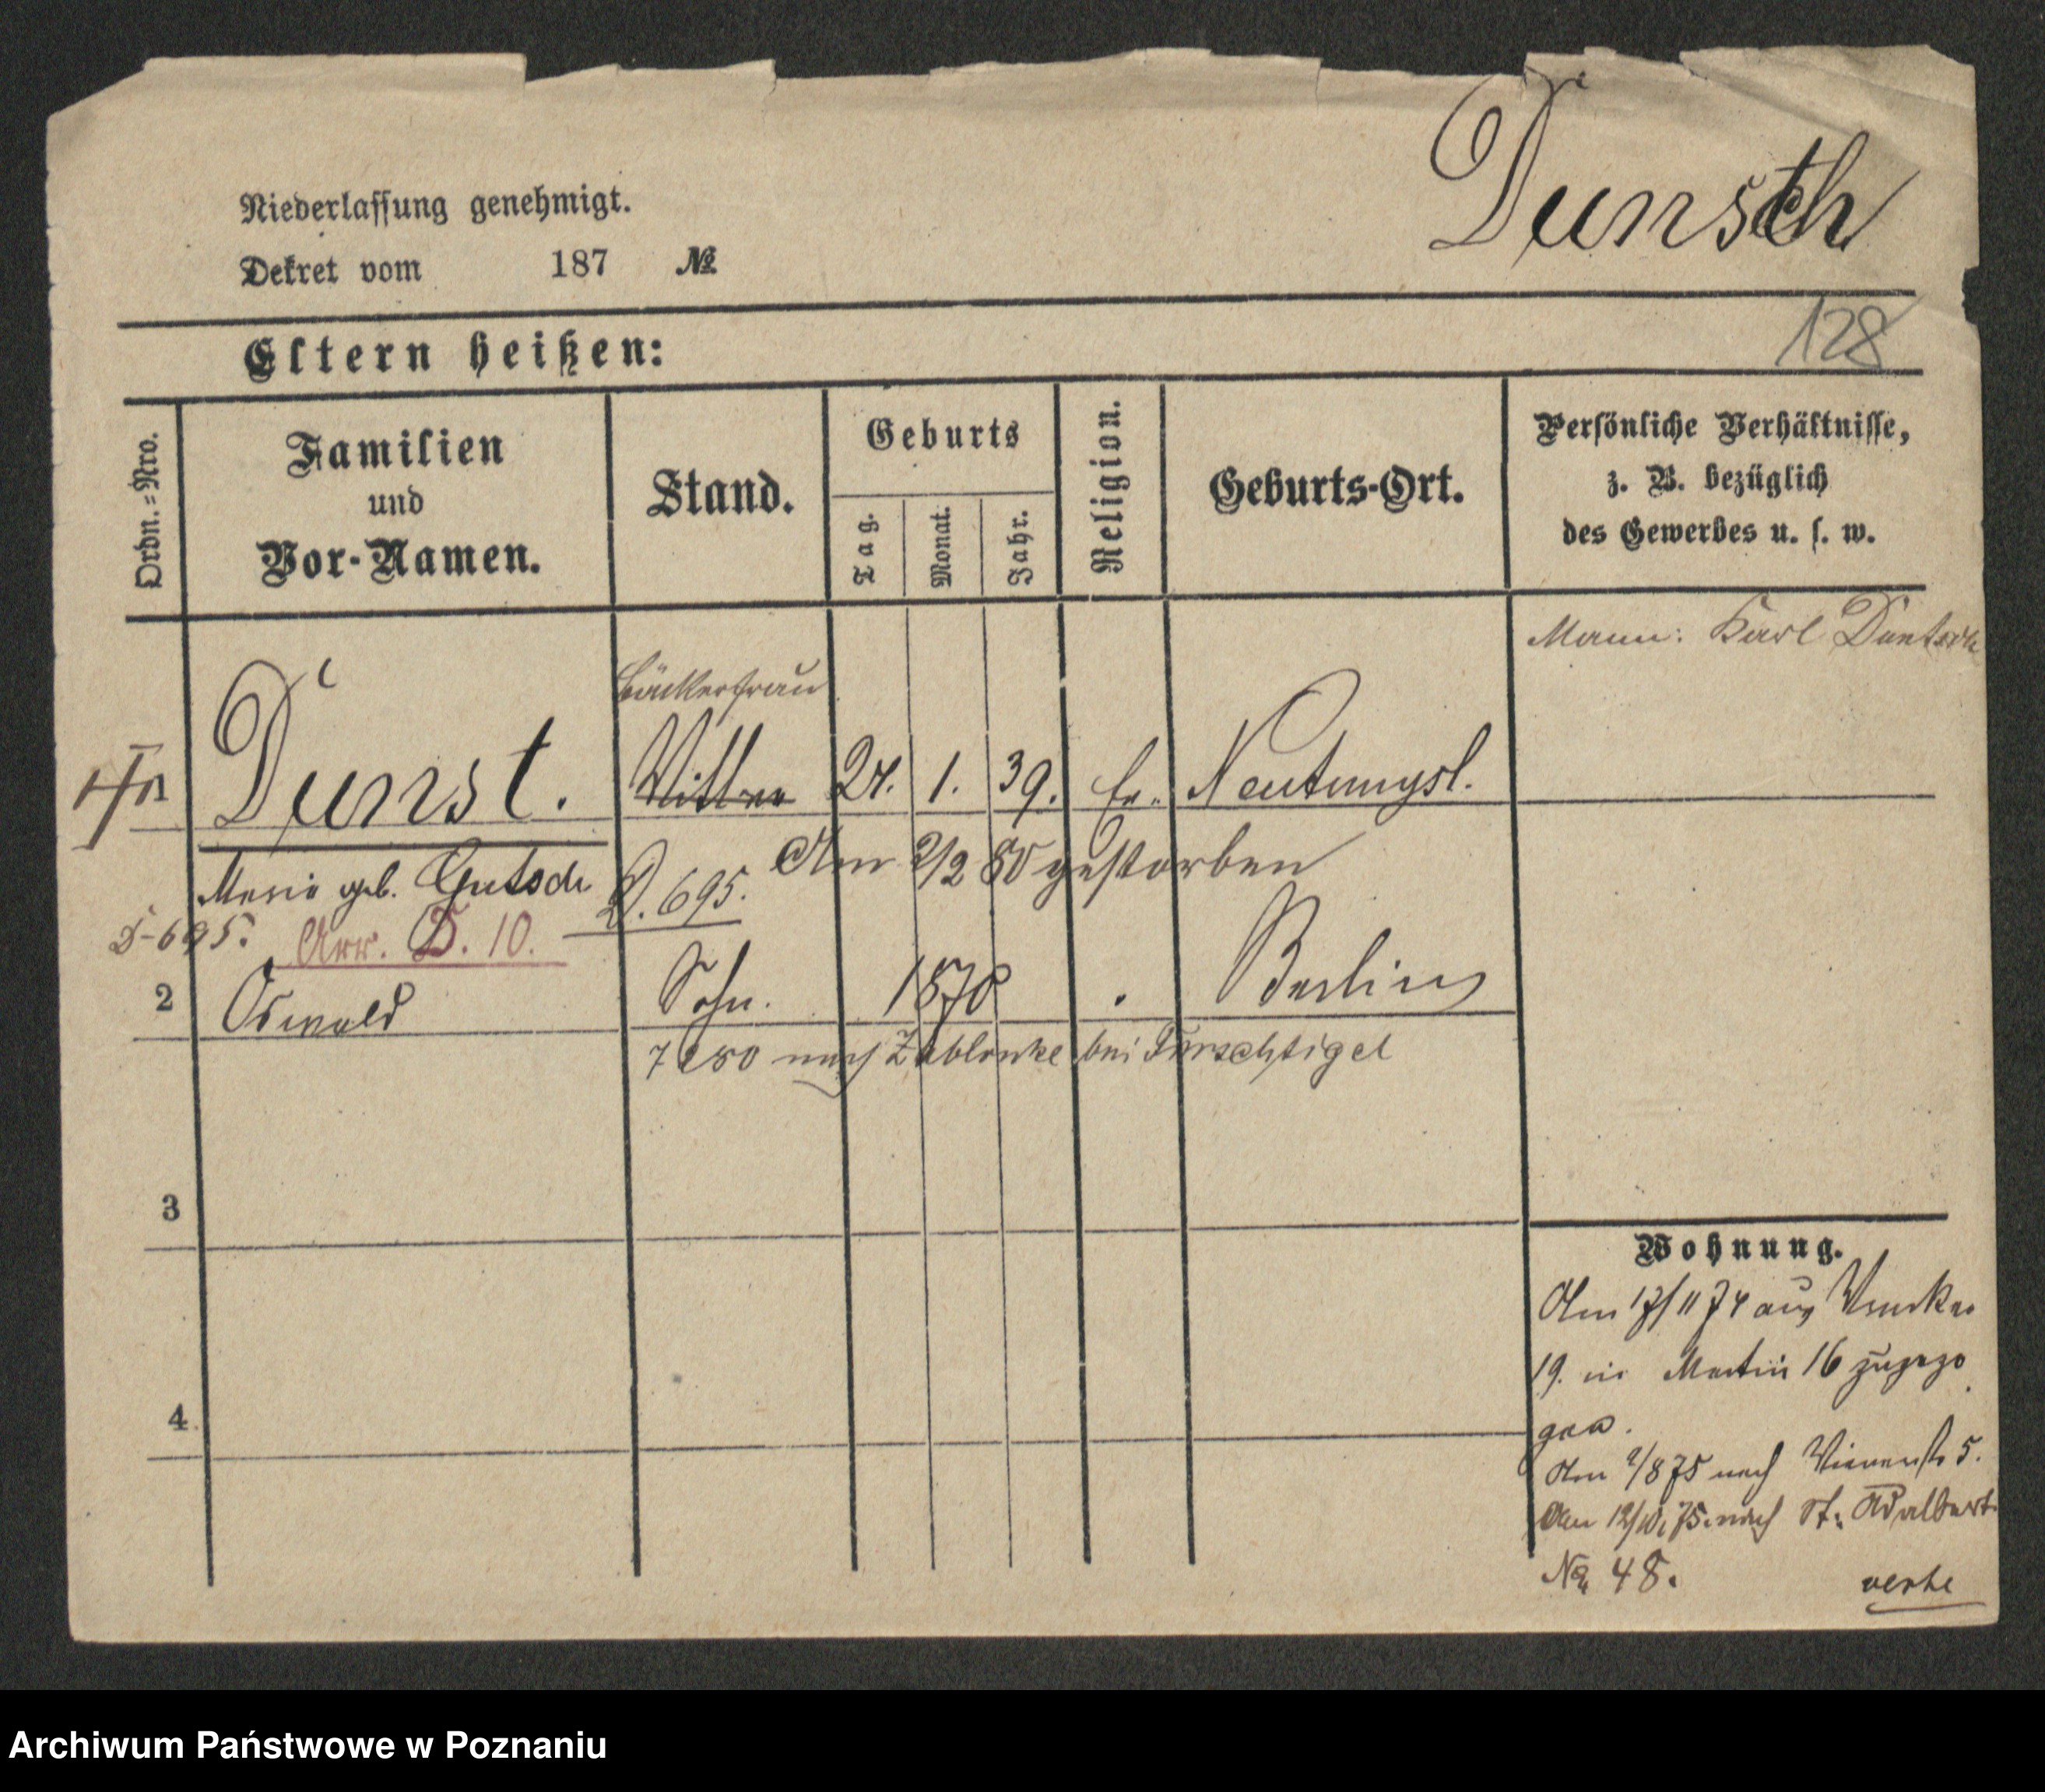 Dunsch
Niederlassung genehmigt.
Dekret vom 187 №
128
Eltern heißen:
Ordn.=Nro.
Familien
und
Vor-Namen.
Stand.
Geburts
Tag.
Monat.
Jahr.
Religion.
Geburts-Ort.
Persönliche Verhältnisse,
z. B. bezüglich
des Gewerbes u. s. w.
Mann: Karl
Bäckerfrau
Dunst. 1. 39. Neutomysl.
Am 2/2 80 gestorben
Marie geb. Gutsch D. 695.
D-695. D. 10.
2 Oswald Sohn. 1870 Berlin
80 nach bei Tirschtigel
3
4
Wohnung.
Am 17/11 74 aus
19. in Martin 16 zugezo
gen.
Am /8 75 nach 5.
Am 12/10. 75. nach St. Adalbert
No 48. verte
Archiwum Państwowe w Poznaniu